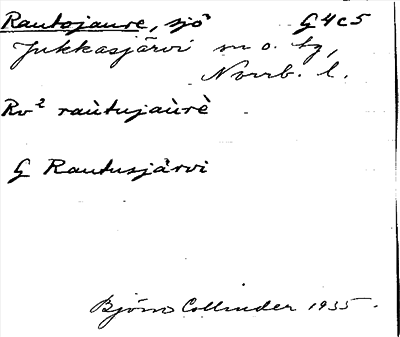 Rautojaure, sjö G4c5
Jukkasjärvi sn o. tg,
Norrb. l.
Rv² raùtujaùrè
G Rautusjärvi
Björn Collinder 1935.